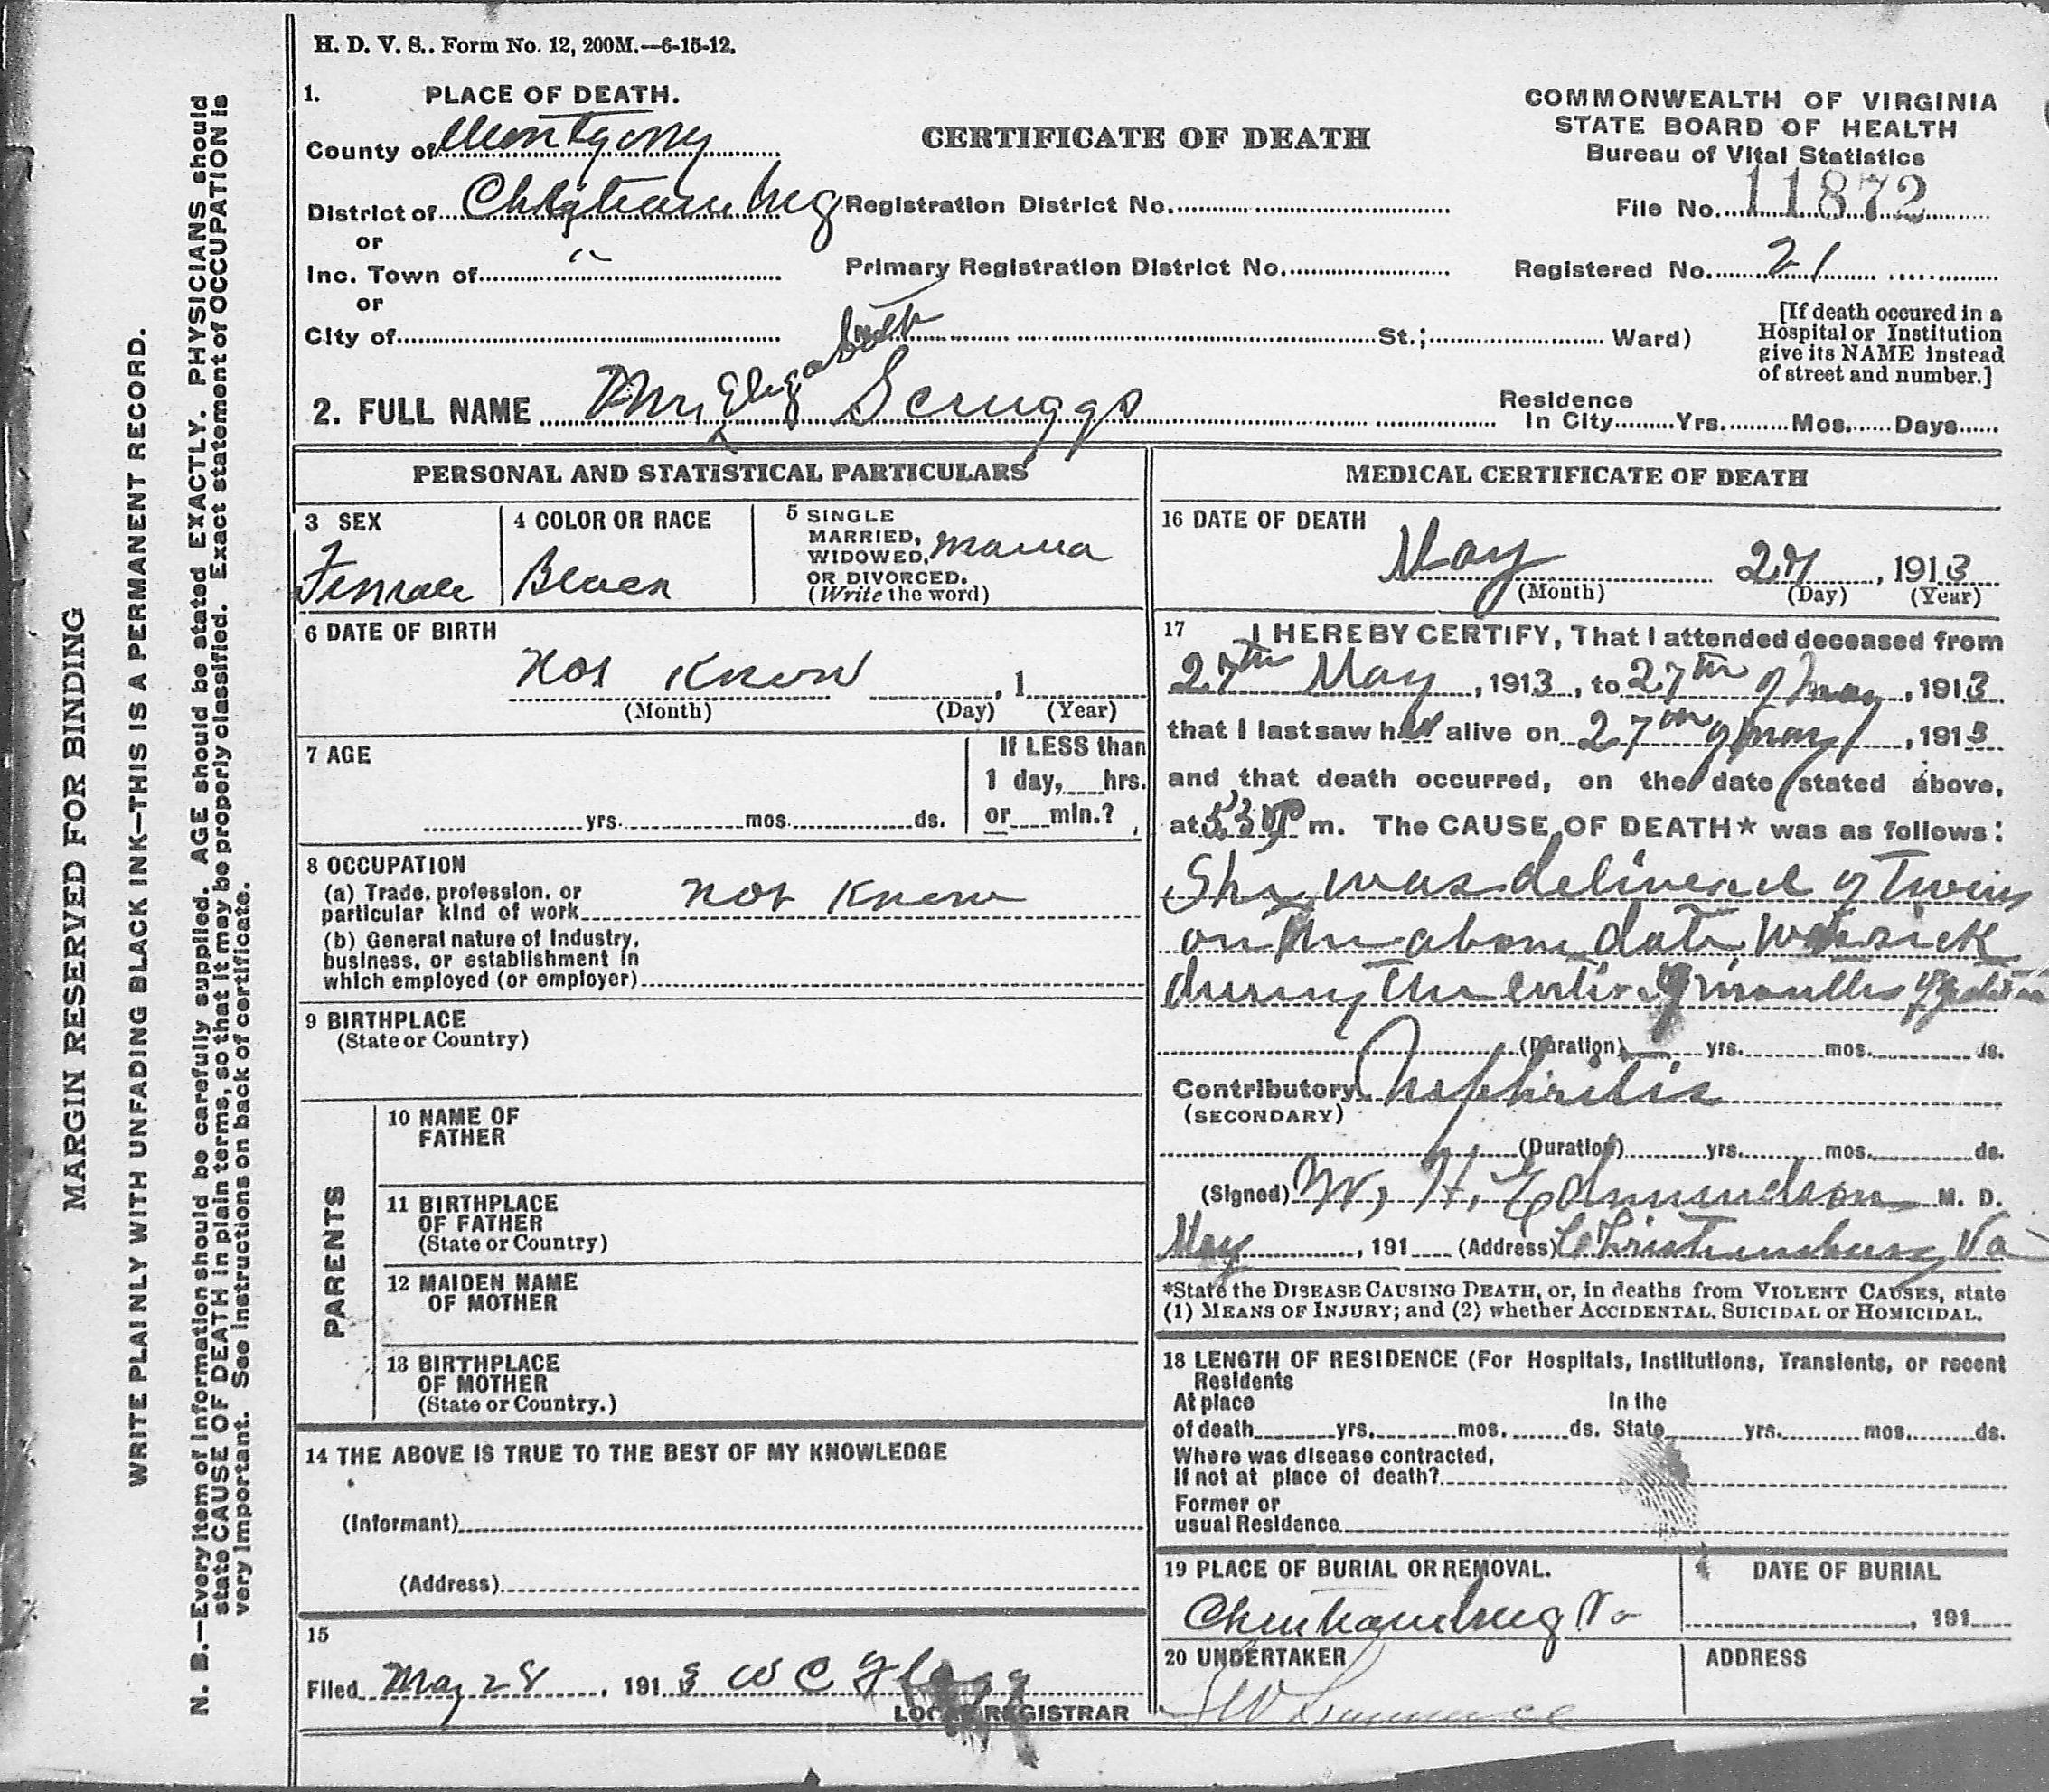 H. D. V. S.. Form No. 12, 200M.—6-15-12.
1. PLACE OF DEATH.
County of Montgomy
District of Christiansburg
or
Inc. Town of "
or
City of
CERTIFICATE OF DEATH
Registration District No.
Primary Registration District No.
St.; Ward)
COMMONWEALTH OF VIRGINIA
STATE BOARD OF HEALTH
Bureau of Vital Statistics
File No. 11872
Registered No. 21
[If death occured in a
Hospital or Institution
give its NAME instead
of street and number.]
2. FULL NAME Mrs Elizabeth Scruggs
Residence
In City Yrs. Mos. Days
PERSONAL AND STATISTICAL PARTICULARS
3 SEX
Female
4 COLOR OR RACE
Black
5 SINGLE
MARRIED,
WIDOWED,
OR DIVORCED.
(Write the word)
6 DATE OF BIRTH
Not Know
, 1
(Month) (Day) (Year)
7 AGE
yrs. mos. ds.
If LESS than
1 day, hrs.
or min.?
8 OCCUPATION
(a) Trade, profession, or
particular kind of work Not Know
(b) General nature of Industry,
business, or establishment in
which employed (or employer)
9 BIRTHPLACE
(State or Country)
PARENTS
10 NAME OF
FATHER
11 BIRTHPLACE
OF FATHER
(State or Country)
12 MAIDEN NAME
OF MOTHER
13 BIRTHPLACE
OF MOTHER
(State or Country.)
14 THE ABOVE IS TRUE TO THE BEST OF MY KNOWLEDGE
(Informant)
(Address)
15
Filed May 28, 1913 W C Flagg
LOCAL REGISTRAR
MEDICAL CERTIFICATE OF DEATH
16 DATE OF DEATH
May 27, 1913
(Month) (Day) (Year)
17 I HEREBY CERTIFY, That I attended deceased from
27th May, 1913, to 27th of May, 1913
that I last saw her alive on 27th of May, 1913
and that death occurred, on the date stated above,
at 5 30 P m. The CAUSE OF DEATH★ was as follows:
She was delivered of Twins
on the above date, was sick
during the entire 9 months
(Duration) yrs. mos. ds.
Contributory Nephritis
(SECONDARY)
(Duration) yrs. mos. ds.
(Signed) W. H. Edmundson M. D.
May, 191 (Address) Christiansburg Va
*State the DISEASE CAUSING DEATH, or, in deaths from VIOLENT CAUSES, state
(1) MEANS OF INJURY; and (2) whether ACCIDENTAL, SUICIDAL or HOMICIDAL.
18 LENGTH OF RESIDENCE (For Hospitals, Institutions, Transients, or recent
Residents
At place In the
of death yrs. mos. ds. State yrs. mos. ds.
Where was disease contracted,
If not at place of death?
Former or
usual Residence
19 PLACE OF BURIAL OR REMOVAL.
Christiansburg Va
DATE OF BURIAL
, 191
20 UNDERTAKER
ADDRESS
MARGIN RESERVED FOR BINDING
WRITE PLAINLY WITH UNFADING BLACK INK—THIS IS A PERMANENT RECORD.
N. B.—Every item of information should be carefully supplied. AGE should be stated EXACTLY. PHYSICIANS should
state CAUSE OF DEATH in plain terms, so that it may be properly classified. Exact statement of OCCUPATION is
very important. See instructions on back of certificate.